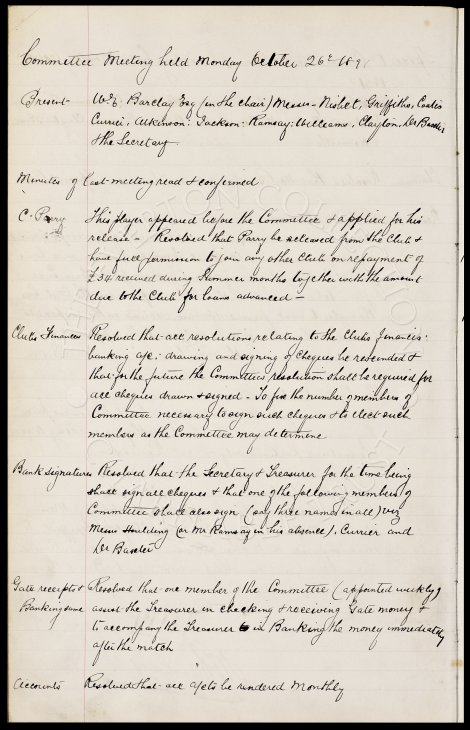 Committee Meeting held Monday October 26th 1891
Present W.E. Barclay Esq (in the chair) Messrs - Nisbet, Griffiths, Coates
Currier, Atkinson: Jackson: Ramsay: Williams, Clayton, Dr Baxter
& the Secretary
Minutes of last meeting read & confirmed
C. Parry This player appeared before the Committee & applied for his
release - Resolved that Parry be released from the Club &
have full permission to join any other Club on repayment of
£34 received during Summer months together with the amount
due to the Club for loans advanced -
Clubs Finances Resolved that all resolutions relating to the Clubs finances:
banking a/c: drawing and signing of cheques be rescinded &
that for the future the Committee's resolution shall be required for
all cheques drawn & signed - To fix the number of members of
Committee necessary to sign such cheques & to elect such
members as the Committee may determine
Bank signatures Resolved that the Secretary & Treasurer for the time being
shall sign all cheques & that one of the following members of
Committee shall also sign (say three names in all) viz
Messrs Houlding (or Mr Ramsay in his absence), Currier and
Dr Baxter
Gate receipts & Resolved that one member of the Committee (appointed weekly)
Banking same assist the Treasurer in checking & receiving Gate money &
to accompany the Treasurer in Banking the money immediately
after the match
Accounts Resolved that all a/cts be rendered Monthly